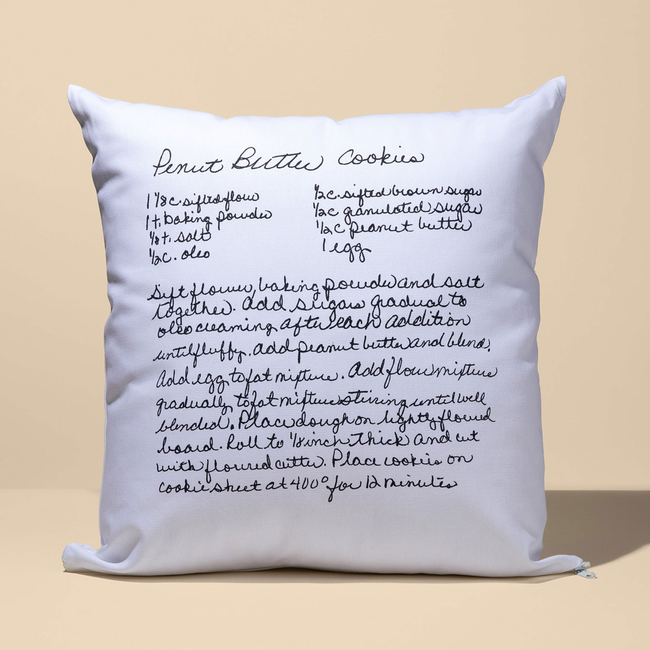 Penut Butter Cookies
1 1/8 c. sifted flour
1 t. baking powder
1/8 t. salt
1/2 c. oleo
1/2 c. sifted brown sugar
1/2 c granulated sugar
1/2 c peanut butter
1 egg
Sift flower, baking powder and salt
together. Add sugars gradual to
oleo creaming after each addition
until fluffy. Add peanut butter and blend.
Add egg to fat mixture. Add flow mixture
gradually to fat mixture stirring until well
blended. Place dough on lightly floured
board. Roll to 1/8 inch thick and cut
with floured cutter. Place cookies on
cookie sheet at 400° for 12 minutes